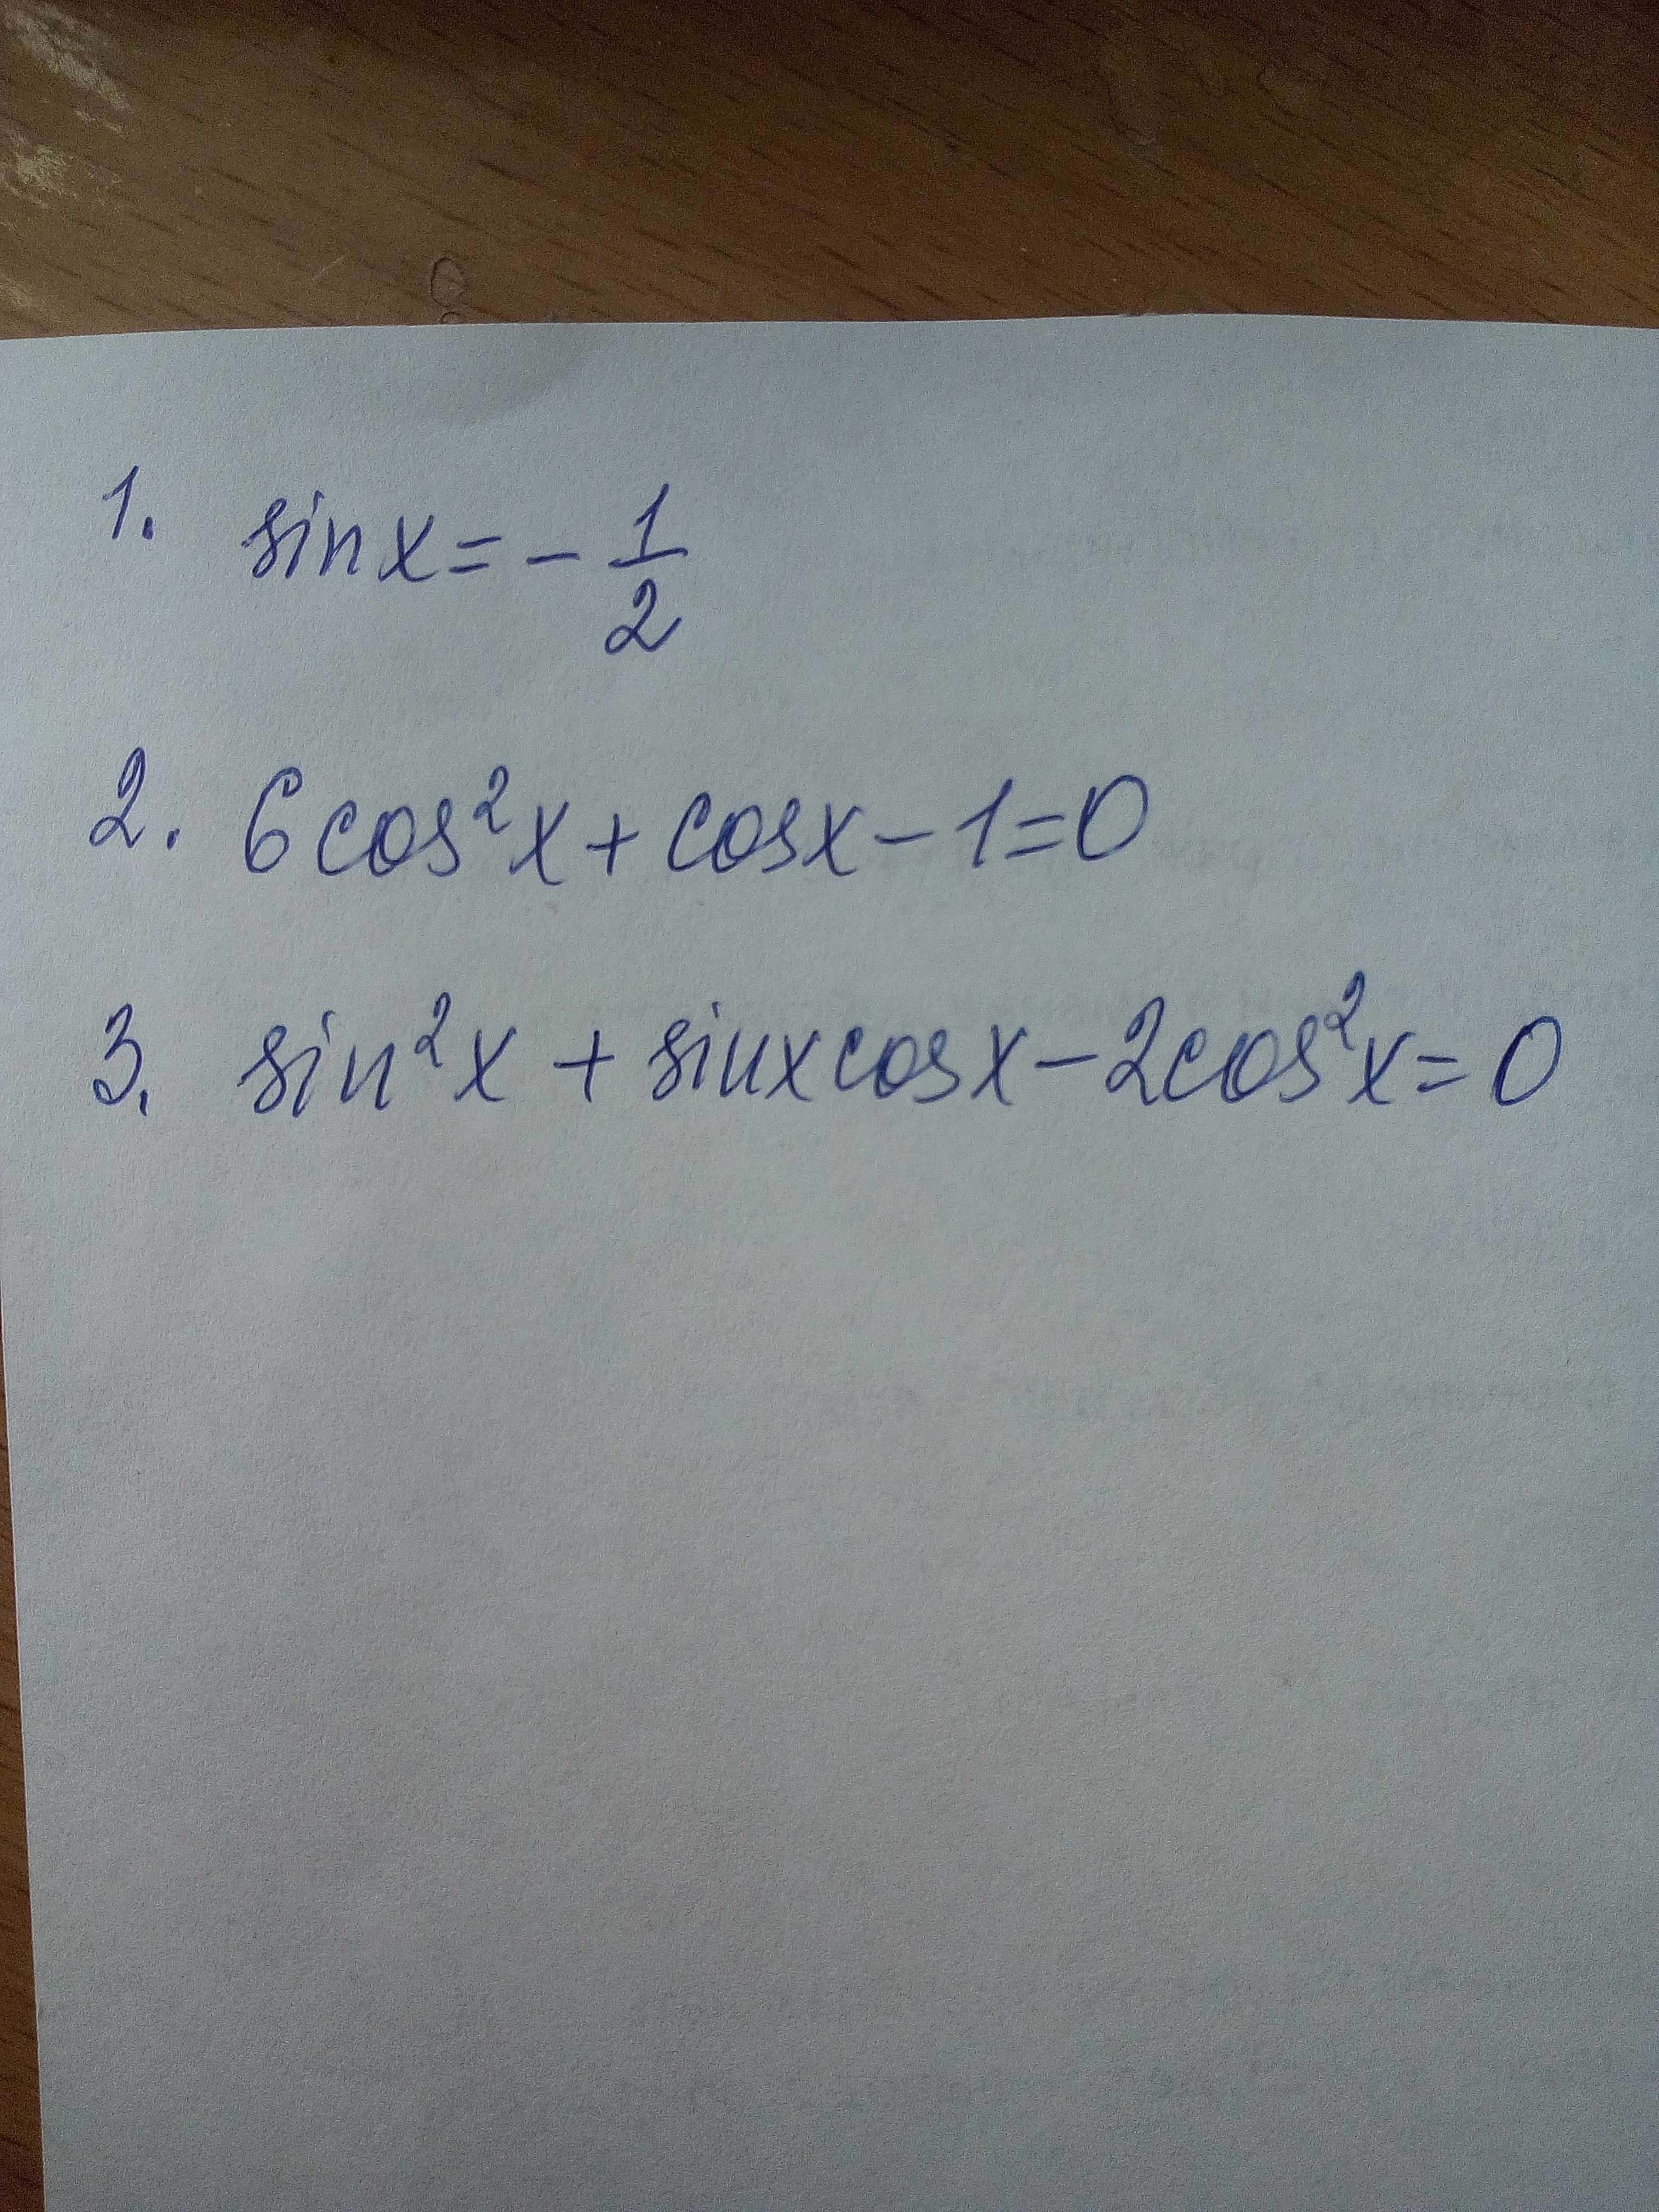 1. sin x = - 1/2
2. 6 cos²x + cos x - 1 = 0
3. sin²x + sin x cos x - 2 cos²x = 0